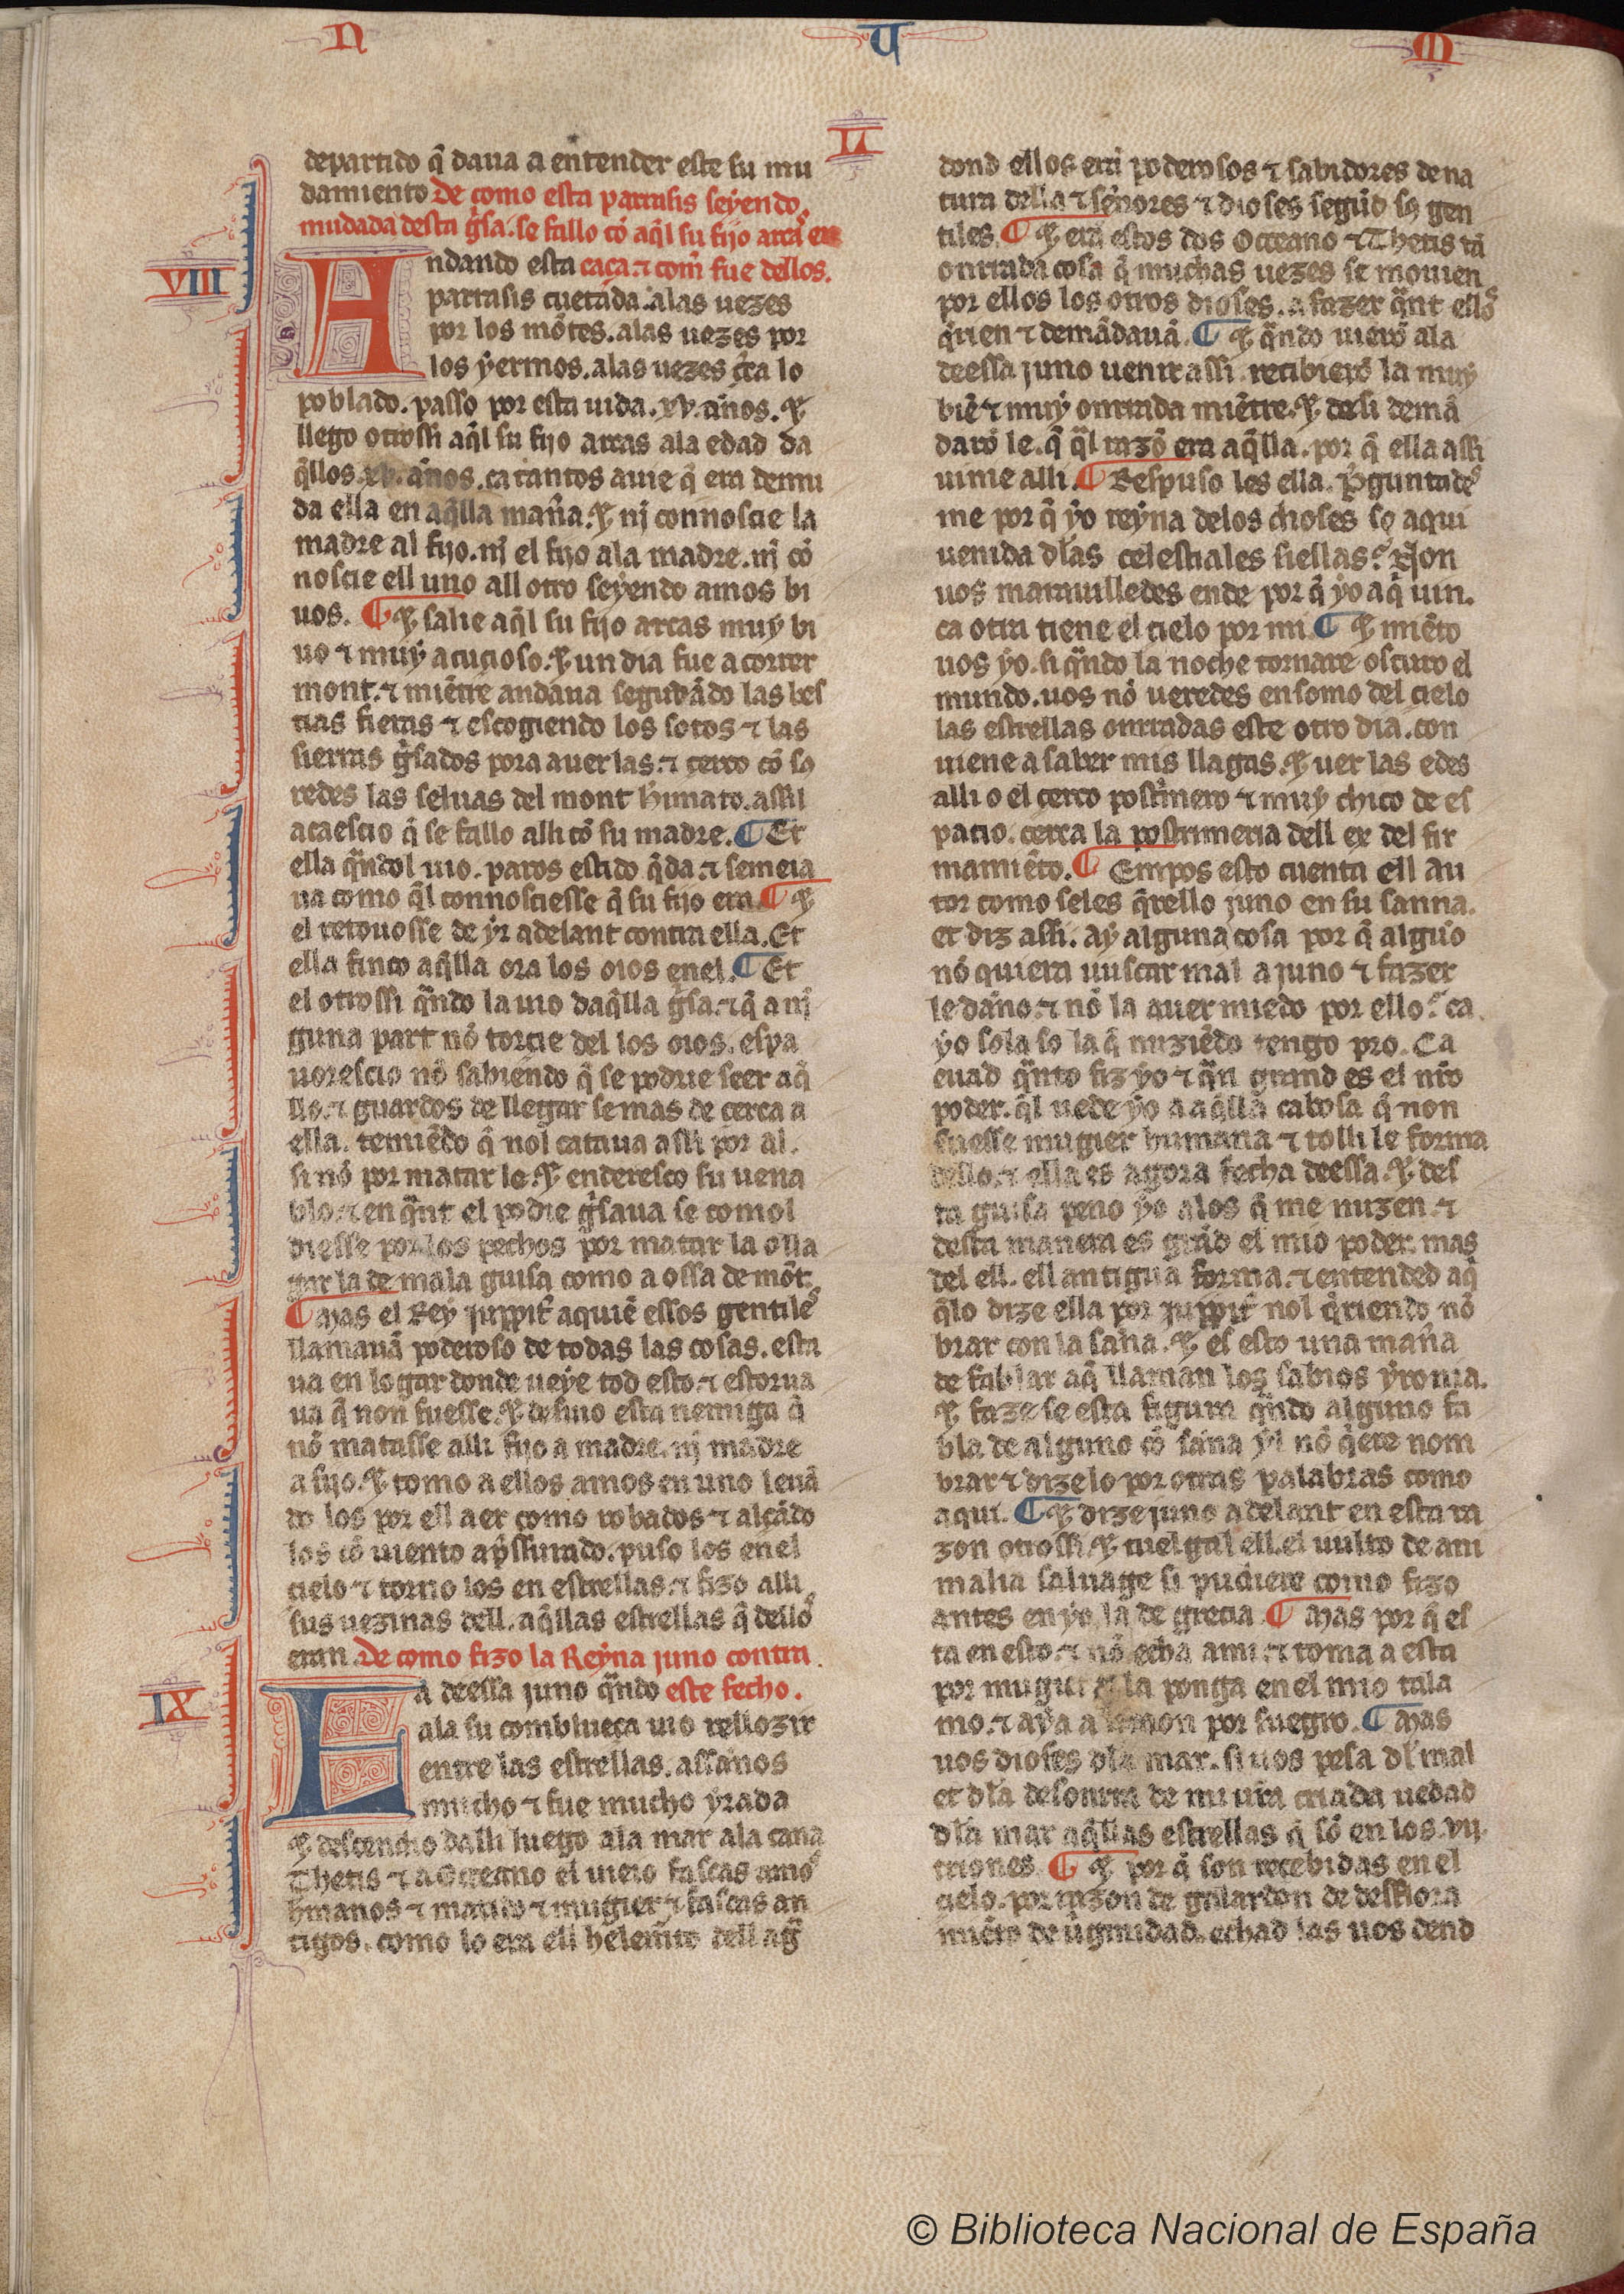 N U M
LI
departido q̃ daua a entender este su mu
damiento De como esta parrasis seyendo
mudada desta gͥsa. se fallo cõ aq̃l su fijo arcas̃ en
VIII
Andando esta caça. ⁊ com̃ fue dellos.
parrasis cuetada. alas uezes
por los mõtes. alas uezes por
los yermos. alas uezes çr̃a lo
poblado. passo por esta uida. xv. años. ⁊
llego otrossi aq̃l su fijo arcas ala edad da
q̃llos. xv. años. ca tantos auie q̃ era demu
da ella en aq̃lla mañra. ⁊ nj connoscie la
madre al fijo. nj el fijo ala madre. nj cõ
noscie ell uno all otro seyendo amos bi
uos. ¶ ⁊ salie aq̃l su fijo arcas muy bi
uo ⁊ muy acucioso. ⁊ un dia fue a correr
mont. ⁊ miẽtre andaua segudãdo las bes
tias fieras ⁊ escogiendo los sotos ⁊ las
sierras gͥsados pora auer las. ⁊ çerco cõ sꝯ
redes las seluas del mont himato. assil
acaescio q̃ se fallo alli cõ su madre. ¶ Et
ella qͣndol uio. paros estido q̃da. ⁊ semeia
ua como q̃l connosciesse q̃ su fijo era. ¶ ⁊
el retouosse de yr adelant contra ella. Et
ella finco aq̃lla ora los oios en el. ¶ Et
el otrossi qͣndo la uio daq̃lla gͥsa. ⁊ q̃ a nj
guna part nõ torçie del los oios. espa
uorescio nõ sabiendo q̃ se podrie seer aq̃
llo. ⁊ guardos de llegar se mas de cerca a
ella. temiẽdo q̃ nol cataua assi por al.
si nõ por matar le. ⁊ enderesco su uena
blo. ⁊ en qͣnt el podie gͥsaua se comol
diesse por los pechos por matar la o lla
gar la de mala guisa como a ossa de mõt.
¶ Mas el Rey juppit̃ aquiẽ essos gentiles
llamauã poderoso de todas las cosas. esta
ua en logar donde ueye tod esto. ⁊ estorua
ua q̃ non fuesse. ⁊ desuio esta nemiga q̃
nõ matasse alli fijo a madre. nj madre
a fijo. ⁊ tomo a ellos amos en uno leuã
do los por ell aer como robados ⁊ alçãdo
los cõ uiento apssurado. puso los en el
cielo ⁊ torno los en estrellas. ⁊ fizo alli
sus uezinas dell. aq̃llas estrellas q̃ dellos
eran. De como fizo la Reyna juno contra
IX
La deessa juno qͣndo este fecho.
ala su comblueça uio rellozir
entre las estrellas. assãnos
mucho ⁊ fue mucho yrada
⁊ descendio dalli luego ala mar ala cana
Thetis ⁊ a Occeano el uieio fascas amos
hm̃anos ⁊ marido ⁊ mugier. ⁊ fascas an
tigos. como lo era ell helem̃to dell agͣ
dond ellos erã poderosos ⁊ sabidores de na
tura della ⁊ señores ⁊ dioses segũd sꝯ gen
tiles. ¶ ⁊ erã estos dos Occeano ⁊ Thetis tã
onrrada cosa q̃ muchas uezes se mouien
por ellos los otros dioses. a fazer qͣnt ellos
q̃rien ⁊ demãdauã. ¶ ⁊ qͣndo uierõ ala
deessa juno uenir assi. recibierõ la muy
biẽ ⁊ muy onrrada miẽtre. ⁊ desi demã
darõ le. q̃ q̃l razõ era aq̃lla. por q̃ ella assi
uinie alli. ¶ Respuso les ella. P̃guntades
me por q̃ yo reyna delos dioses so aqui
uenida dl̃as celestiales siellas? Non
uos marauilledes ende por q̃ yo aq̃ uin.
ca otra tiene el cielo por mi. ¶ ⁊ miẽto
uos yo. si qͣndo la noche tornare oscuro el
mundo. uos nõ ueredes ensomo del cielo
las estrellas onrradas este otro dia. con
uiene a saber mis llagas. ⁊ uer las edes
alli o el çerco postͥmero ⁊ muy chico de es
pacio. çerca la postrimeria dell ex del fir
mamiẽto. ¶ Empos esto cuenta ell au
tor como seles q̃rello juno en su sanna.
et diz assi. Ay alguna cosa por q̃ alguo
nõ quiera buscar mal a juno ⁊ fazer
le daño. ⁊ nõ la auer miedo por ello? ca
yo sola so la q̃ nuziẽdo tengo pro. Ca
euad qͣnto fiz yo ⁊ qͣn grand es el nr̃o
poder. q̃l uede yo a aq̃lla cabosa q̃ non
fuesse mugier humana ⁊ tolli le forma
dello. ⁊ ella es agora fecha deessa. ⁊ des
ta guisa peno yo alos q̃ me nuzen. ⁊
desta manera es grãd el mio poder. mas
del ell. ell antigua forma. ⁊ entended aq̃
q̃lo dize ella por juppit̃ nol q̃riendo nõ
brar con la saña. ⁊ es esto una mañra
de fablar aq̃ llaman los sabios yronia.
⁊ faze se esta figura qͣndo alguno fa
bla de alguno cõ saña yl nõ q̃ere nom
brar ⁊ dizelo por otras palabras como
aqui. ¶ ⁊ dize juno adelant en esta ra
zon otrossi. ⁊ tuelgal ell. el uulto de ani
malia saluage si pudiere como fizo
antes en yo, la de grecia. ¶ Mas por q̃ es
ta en esto. ⁊ nõ echa ami. ⁊ toma a esta
por mugier ⁊ la ponga en el mio tala
mo. ⁊ aya a licaon por suegro. ¶ Mas
uos dioses dl̃a mar. si uos pesa dl̃ mal
et dl̃a desonrra de mi ur̃a criada uedad
dl̃a mar aq̃llas estrellas q̃ sõ en los. vij.
triones. ¶ ⁊ por q̃ son recebidas en el
cielo. por razon de gualardon de desflora
miẽto de uͥginidad. echad las uos dend
© Biblioteca Nacional de España